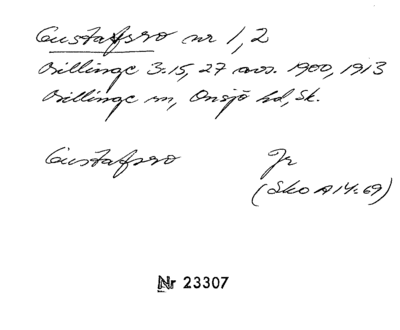 Gustafsro nr 1, 2
Billinge 3:15, 27 avs. 1900, 1913
Billinge sn, Onsjö hd, Sk.
Gustafsro Jr
(Sko A 14:69)
Nr 23307